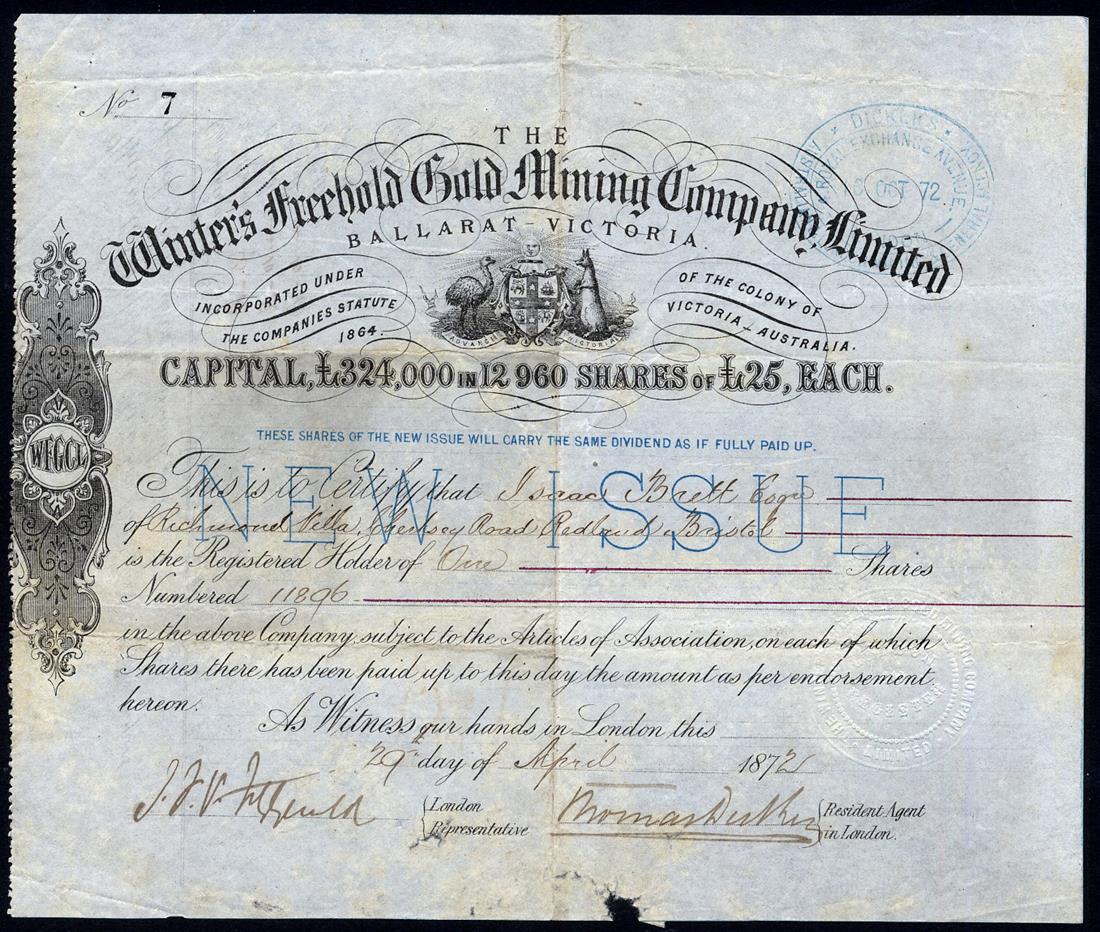 No 7
THE
Winter's Freehold Gold Mining Company, Limited
BALLARAT - VICTORIA.
INCORPORATED UNDER
THE COMPANIES STATUTE
1864.
OF THE COLONY OF
VICTORIA - AUSTRALIA.
ADVANCE VICTORIA
DICKER'S
ROYAL EXCHANGE AVENUE
OCT 72
CAPITAL, £324,000 IN 12 960 SHARES OF £25, EACH.
THESE SHARES OF THE NEW ISSUE WILL CARRY THE SAME DIVIDEND AS IF FULLY PAID UP.
NEW ISSUE
WFGCL
This is to Certify that Isaac Brett Esqr
of Richmond Villa, Road Redland Bristol
is the Registered Holder of One Shares
Numbered 11896
in the above Company, subject to the Articles of Association, on each of which
Shares there has been paid up to this day the amount as per endorsement
hereon.
As Witness our hands in London this
29th day of April 1872
London
Representative
Resident Agent
in London.
MINING COMPANY
LIMITED
REGISTER